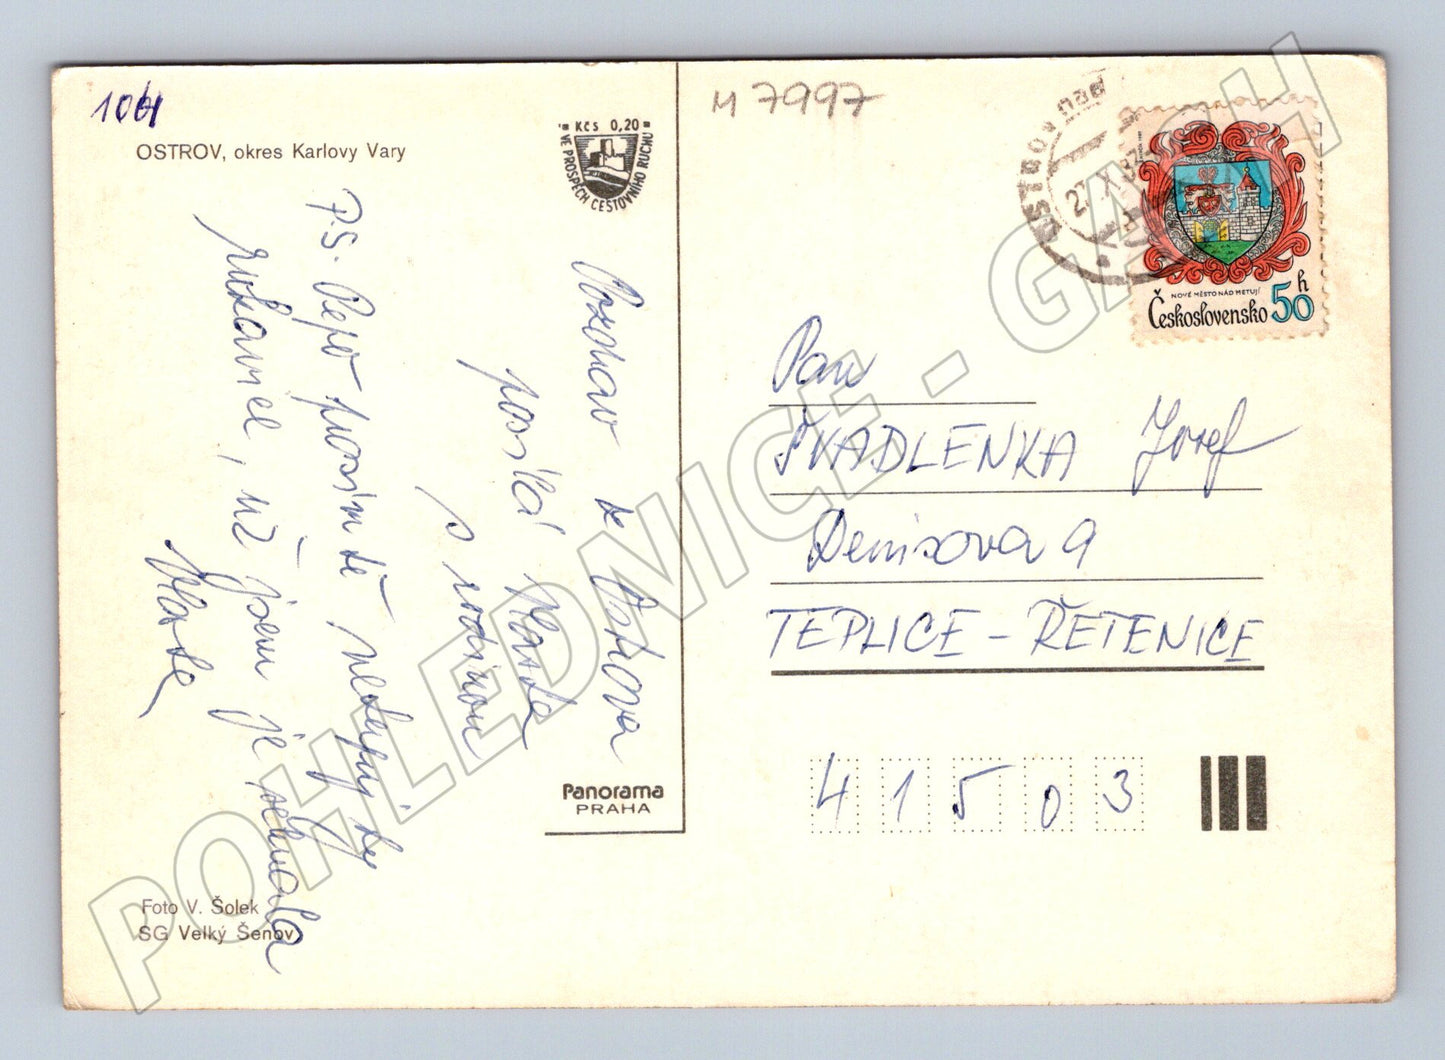 1064
OSTROV, okres Karlovy Vary
Kčs 0,20
VE PROSPĚCH CESTOVNÍHO RUCHU
Pozdrav z Ostrova
posílá Vlasta
s rodinou
PS. Pepo prosím tě nekupuj ty
rukavice, už jsem je sehnala
Vlasta
Foto V. Šolek
SG Velký Šenov
Panorama
PRAHA
M 7997
OSTROV nad
27.X.87
NOVÉ MĚSTO NAD METUJÍ
Československo 50 h
Pan
ŠVADLENKA Josef
Denisova 9
TEPLICE – ŘETENICE
41503
POHLEDNICE - GASH